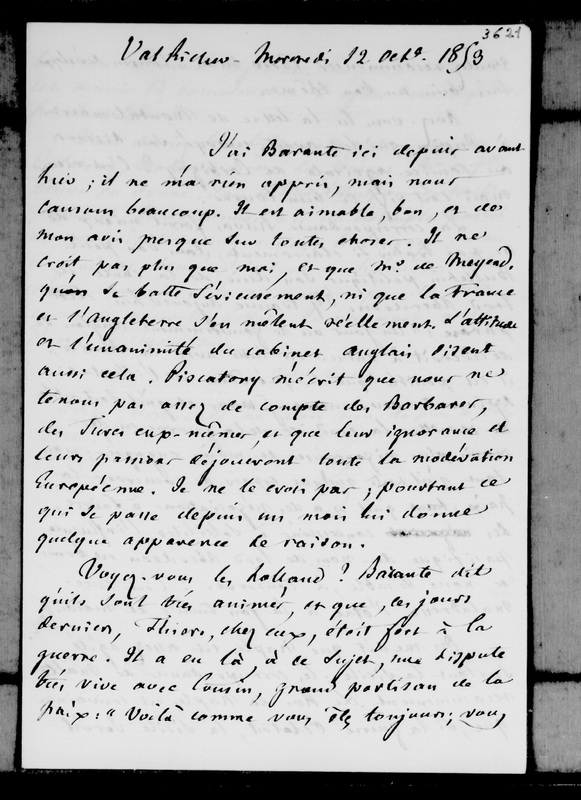 3621
Val Richer - Mercredi 12 Octe. 1853
J'ai Barante ici depuis avant
hier ; il ne m'a rien appris, mais nous
causons beaucoup. Il est aimable, bon, et de
mon avis presque sur toutes choses. Il ne
croit pas plus que moi, et que Mr. de Meyend.
qu'on se batte sérieusement, ni que la France
et l'Angleterre s'en mêlent réellement. L'attitude
et l'unanimité du cabinet anglais disent
aussi cela. Piscatory m'écrit que nous ne
tenons pas assez de compte des Barbares,
des Turcs eux-mêmes, et que leur ignorance et
leurs passions déjoueront toute la modération
Européenne. Je ne le crois pas ; pourtant ce
qui se passe depuis un mois lui donne
quelque apparence de raison.
Voyez-vous les holland ? Barante dit
qu'ils sont très animés, et que, ces jours
derniers, Thiers, chez eux, étoit fort à la
guerre. Il a eu là, à ce sujet, une dispute
très vive avec Cousin, grand partisan de la
paix : " Voilà comme vous êtes toujours ; vous